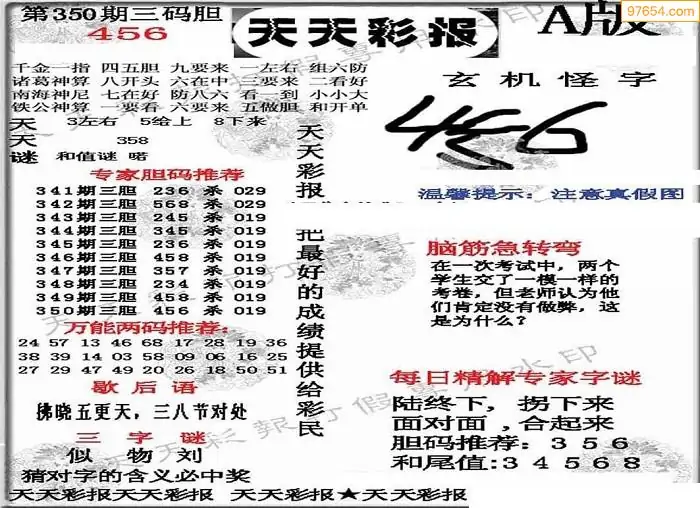 97654.com
第350期三码胆
456
天天彩报
A版
千金一指 四五胆 九要来 一左右 组六防
诸葛神算 八开头 六在中 三要来 二看好
南海神尼 七在好 防八六 看一到 小小大
铁公神算 一要看 六要来 五做胆 和开单
天 3左右 5给上 8下来
天 358
谜 和值谜 喏
专家胆码推荐
341期三胆 236 杀 029
342期三胆 568 杀 029
343期三胆 245 杀 019
344期三胆 345 杀 019
345期三胆 236 杀 019
346期三胆 458 杀 019
347期三胆 357 杀 019
348期三胆 234 杀 019
349期三胆 458 杀 019
350期三胆 456 杀 019
万能两码推荐:
24 57 13 46 68 17 28 19 36
38 39 14 03 58 09 06 16 25
27 29 47 49 20 26 18 50 51
歇后语
拂晓五更天，三八节对处
三字谜
似 物 刘
猜对字的含义必中奖
天天彩报
把最好的成绩提供给彩民
玄机怪字
456
温馨提示：注意真假图
脑筋急转弯
在一次考试中，两个
学生交了一模一样的
考卷，但老师认为他
们肯定没有做弊，这
是为什么？
每日精解专家字谜
陆终下，拐下来
面对面，合起来
胆码推荐：356
和尾值:34568
天天彩报天天彩报 天天彩报★天天彩报